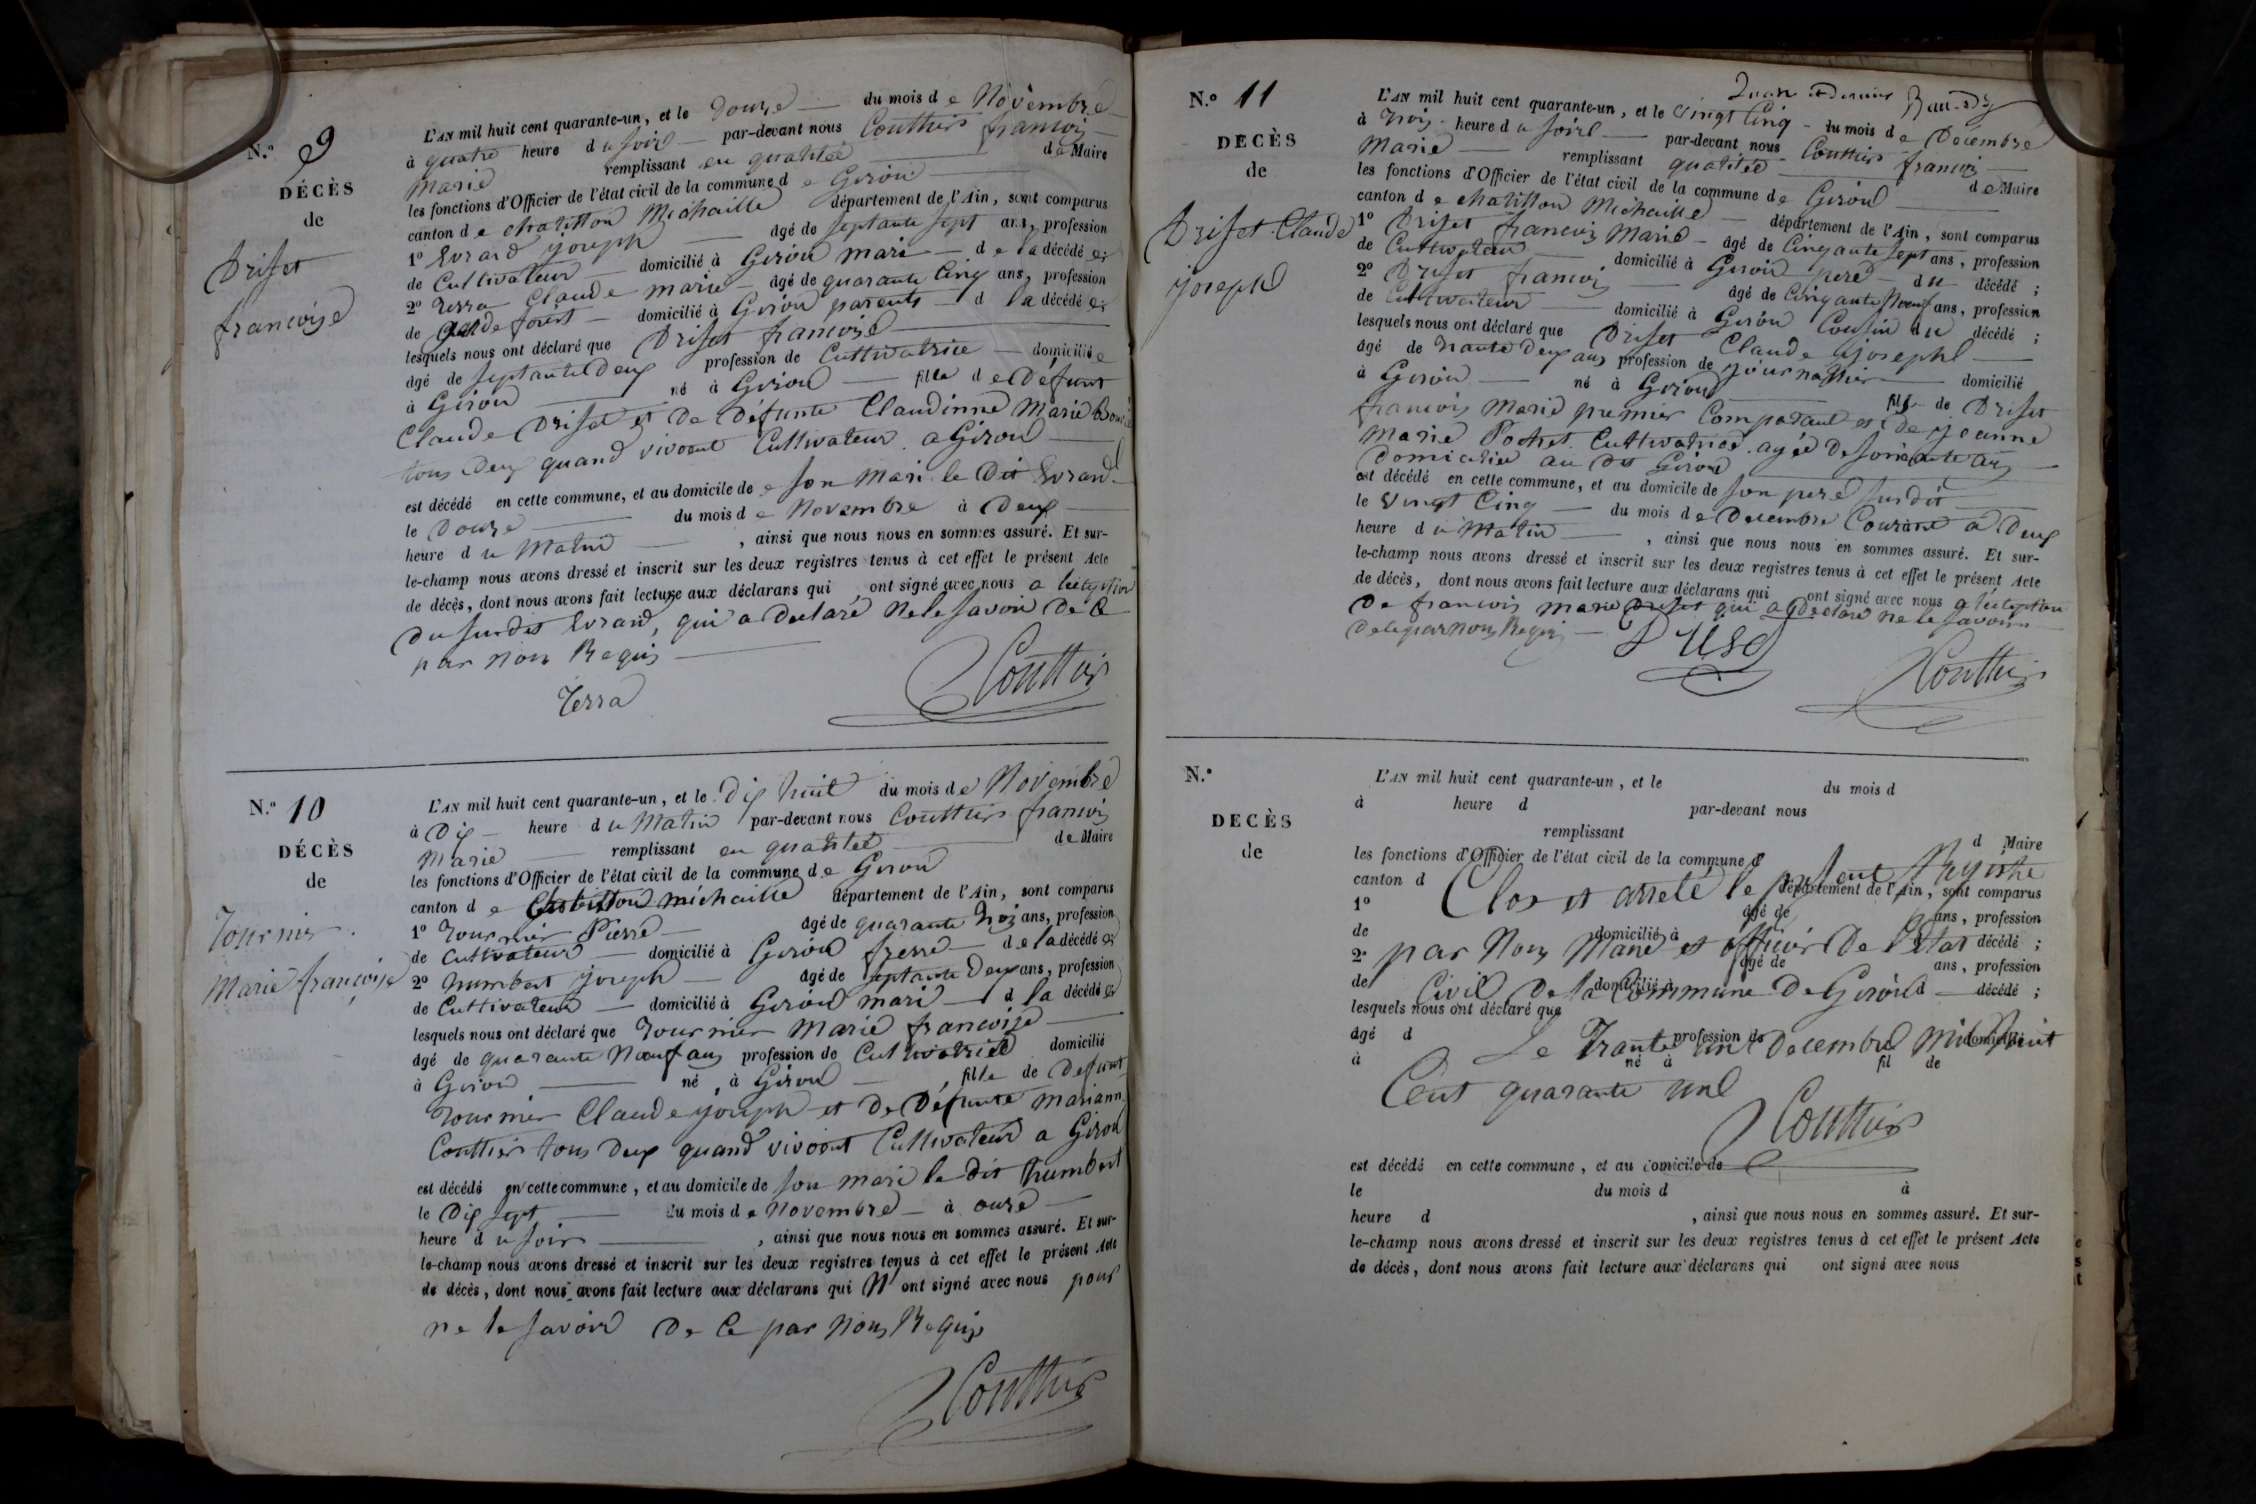 N.º 9
DÉCÈS
de
Driset
francoise
L'AN mil huit cent quarante-un, et le Douze du mois de Novembre
à quatre heure du soir par-devant nous Couttier francois
Marie remplissant en qualitée de Maire
les fonctions d'Officier de l'état civil de la commune de Giron
canton de chatillon Michaille département de l'Ain, sont comparus
1º Evrard joseph âgé de septante sept ans, profession
de Cultivateur domicilié à Giron mari de la décédée;
2º Terra Claude marie âgé de quarante Cinq ans, profession
de garde forest domicilié à Giron parents d la décédée;
lesquels nous ont déclaré que Driset francoise
âgé de septante Deux profession de Cultivatrice domiciliée
à Giron né à Giron fille de Défunt
Claude Driset et de Défunte Claudinne Marie
tous Deux quand vivoent Cultivateur a Giron
est décédé en cette commune, et au domicile de son Mari le Dit Evrard
le Douze du mois de Novembre à Deux
heure du Matin, ainsi que nous nous en sommes assuré. Et sur-
le-champ nous avons dressé et inscrit sur les deux registres tenus à cet effet le présent Acte
de décès, dont nous avons fait lecture aux déclarans qui ont signé avec nous a
Du susdit Evrard, qui a Declaré Ne le savoir De Ce
par Nous Requis
Terra
Couttier
N.º 10
DÉCÈS
de
Tournier
Marie françoise
L'AN mil huit cent quarante-un, et le Dix huit du mois de Novembre
à Dix heure du Matin par-devant nous Couttier francois
Marie remplissant en qualitée de Maire
les fonctions d'Officier de l'état civil de la commune de Giron
canton de Chatillon michaille département de l'Ain, sont comparus
1º Tournier Pierre âgé de quarante trois ans, profession
de Cultivateur domicilié à Giron frerre de la décédée;
2º humbert joseph âgé de septante Deux ans, profession
de Cultivateur domicilié à Giron mari d la décédée;
lesquels nous ont déclaré que Tournier Marie francoise
âgé de quarante Nœuf ans profession de Cultivatrice domicilié
à Giron né à Giron, fille de Defunt
Tournier Claude joseph et de Défunte mariann
Couttier tous Deux quand vivoent Cultivateur a Giron
est décédé en cette commune, et au domicile de son mari le dit humbert
le Dix sept du mois de Novembre à onze
heure du soir, ainsi que nous nous en sommes assuré. Et sur-
le-champ nous avons dressé et inscrit sur les deux registres tenus à cet effet le présent Acte
de décès, dont nous avons fait lecture aux déclarans qui N'ont signé avec nous pour
ne le savoir De Ce par Nous Requis
Couttier
N.º 11
DECÈS
de
Driset Claude
joseph
L'AN mil huit cent quarante-un, et le vingt Cinq du mois de Décembre
à trois heure du soir par-devant nous Couttier francois
Marie remplissant qualitée de Maire
les fonctions d'Officier de l'état civil de la commune de Giron
canton de chatillon Michaille département de l'Ain, sont comparus
1º Driset francois Marie âgé de Cinqante sept ans, profession
de Cultivateur domicilié à Giron pere du décédé;
2º Driset francois âgé de Cinqante Nœuf ans, profession
de Cultivateur domicilié à Giron Cousin du décédé;
lesquels nous ont déclaré que Driset Claude joseph
âgé de trante Deux ans profession de journallier domicilié
à Giron né à Giron fils de Driset
francois Marie premier Comparant et de jeanne
Marie Pochet Cultivatrice agée de soixante ans
Domiciliée au dit Giron
est décédé en cette commune, et au domicile de son pere susdit
le vingt Cinq du mois de Decembre Courant à Deux
heure du Matin, ainsi que nous nous en sommes assuré. Et sur-
le-champ nous avons dressé et inscrit sur les deux registres tenus à cet effet le présent Acte
de décès, dont nous avons fait lecture aux déclarans qui ont signé avec nous a
De francois marie Driset qui a Declaré ne le savoir
De Ce par nous Requis
Couttier
N.º
DECÈS
de
L'AN mil huit cent quarante-un, et le du mois d
à heure d par-devant nous
remplissant d Maire
les fonctions d'Officier de l'état civil de la commune d
canton d département de l'Ain, sont comparus
Clos et arreté le present Registre
1º âgé de ans, profession
de domicilié à décédé;
par Nous Maire et officier De l'Etat
2º âgé de ans, profession
de domicilié à d décédé;
Civil De la Commune De Giron
lesquels nous ont déclaré que
âgé d profession de domicilié
Le Trante un Decembre Mil huit
à né à fil de
Cent quarante un
Couttier
est décédé en cette commune, et au domicile de
le du mois d à
heure d, ainsi que nous nous en sommes assuré. Et sur-
le-champ nous avons dressé et inscrit sur les deux registres tenus à cet effet le présent Acte
de décès, dont nous avons fait lecture aux déclarans qui ont signé avec nous